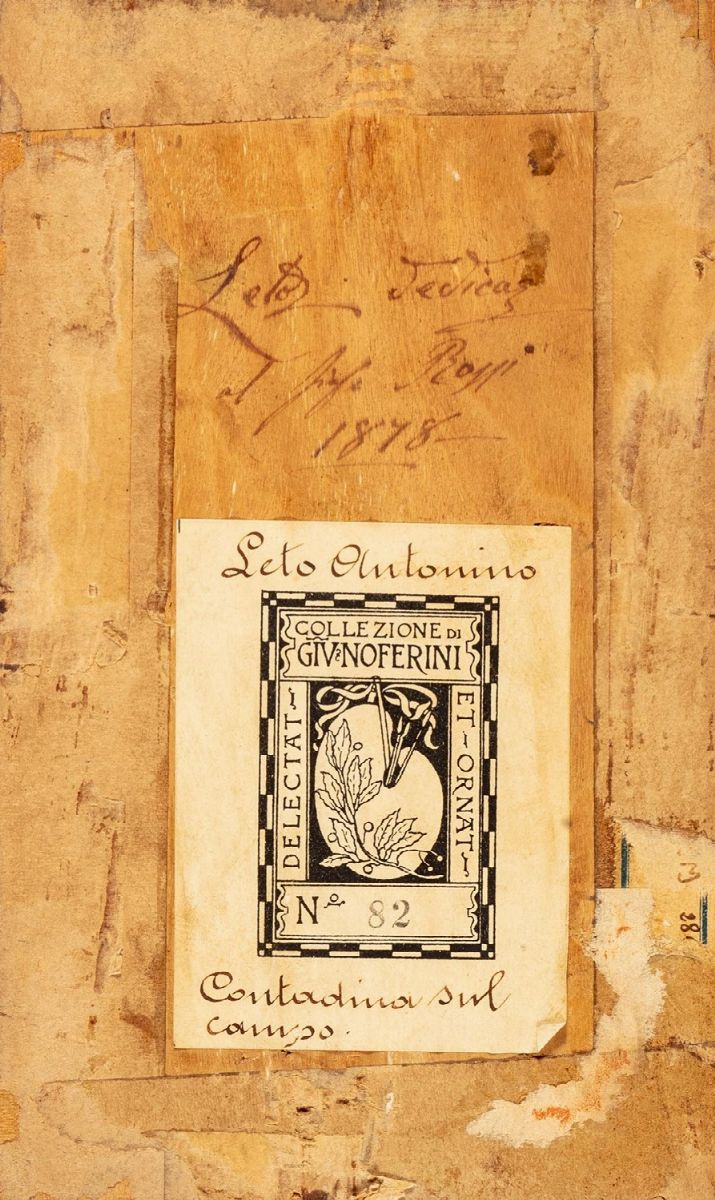 Leto dedica
al Rossi
1878
Leto Antonino
COLLEZIONE DI
GIV^E NOFERINI
DELECTAT
ET ORNAT
Nº 82
Contadina sul
campo.